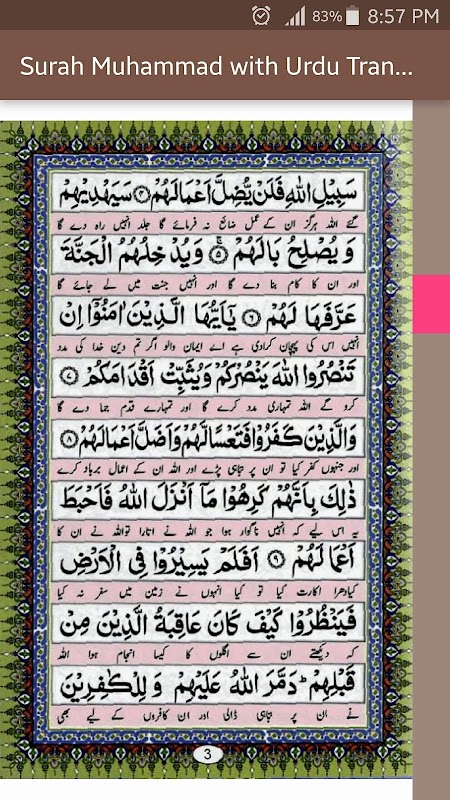 83% 8:57 PM
Surah Muhammad with Urdu Tran...
سَبِيْلِ اللّٰهِ فَلَنْ يُّضِلَّ اَعْمَالَهُمْ ۝۴ سَيَهْدِيْهِمْ
گئے اللہ ہرگز ان کے عمل ضائع نہ فرمائے گا جلد انہیں راہ دے گا
وَ يُصْلِحُ بَالَهُمْ ۝۵ وَ يُدْخِلُهُمُ الْجَنَّةَ
اور ان کا کام بنا دے گا اور انہیں جنت میں لے جائے گا
عَرَّفَهَا لَهُمْ ۝۶ يٰۤاَيُّهَا الَّذِيْنَ اٰمَنُوْۤا اِنْ
انہیں اس کی پہچان کرادی ہے اے ایمان والو اگر تم دین خدا کی مدد
تَنْصُرُوا اللّٰهَ يَنْصُرْكُمْ وَيُثَبِّتْ اَقْدَامَكُمْ ۝۷
کرو گے اللہ تمہاری مدد کرے گا اور تمہارے قدم جما دے گا
وَالَّذِيْنَ كَفَرُوْا فَتَعْسًا لَّهُمْ وَاَضَلَّ اَعْمَالَهُمْ ۝۸
اور جنہوں کفر کیا تو ان پر تباہی پڑے اور اللہ ان کے اعمال برباد کرے
ذٰلِكَ بِاَنَّهُمْ كَرِهُوْا مَاۤ اَنْزَلَ اللّٰهُ فَاَحْبَطَ
یہ اس لیے کہ انہیں ناگوار ہوا جو اللہ نے اتارا تو اللہ نے ان کا
اَعْمَالَهُمْ ۝۹ اَفَلَمْ يَسِيْرُوْا فِى الْاَرْضِ
کیا دھرا اکارت کیا تو کیا انہوں نے زمین میں سفر نہ کیا
فَيَنْظُرُوْا كَيْفَ كَانَ عَاقِبَةُ الَّذِيْنَ مِنْ
کہ دیکھتے ان سے اگلوں کا کیسا انجام ہوا اللہ
قَبْلِهِمْ ؕ دَمَّرَ اللّٰهُ عَلَيْهِمْ وَ لِلْكٰفِرِيْنَ
نے ان پر تباہی ڈالی اور ان کافروں کے لیے بھی
3